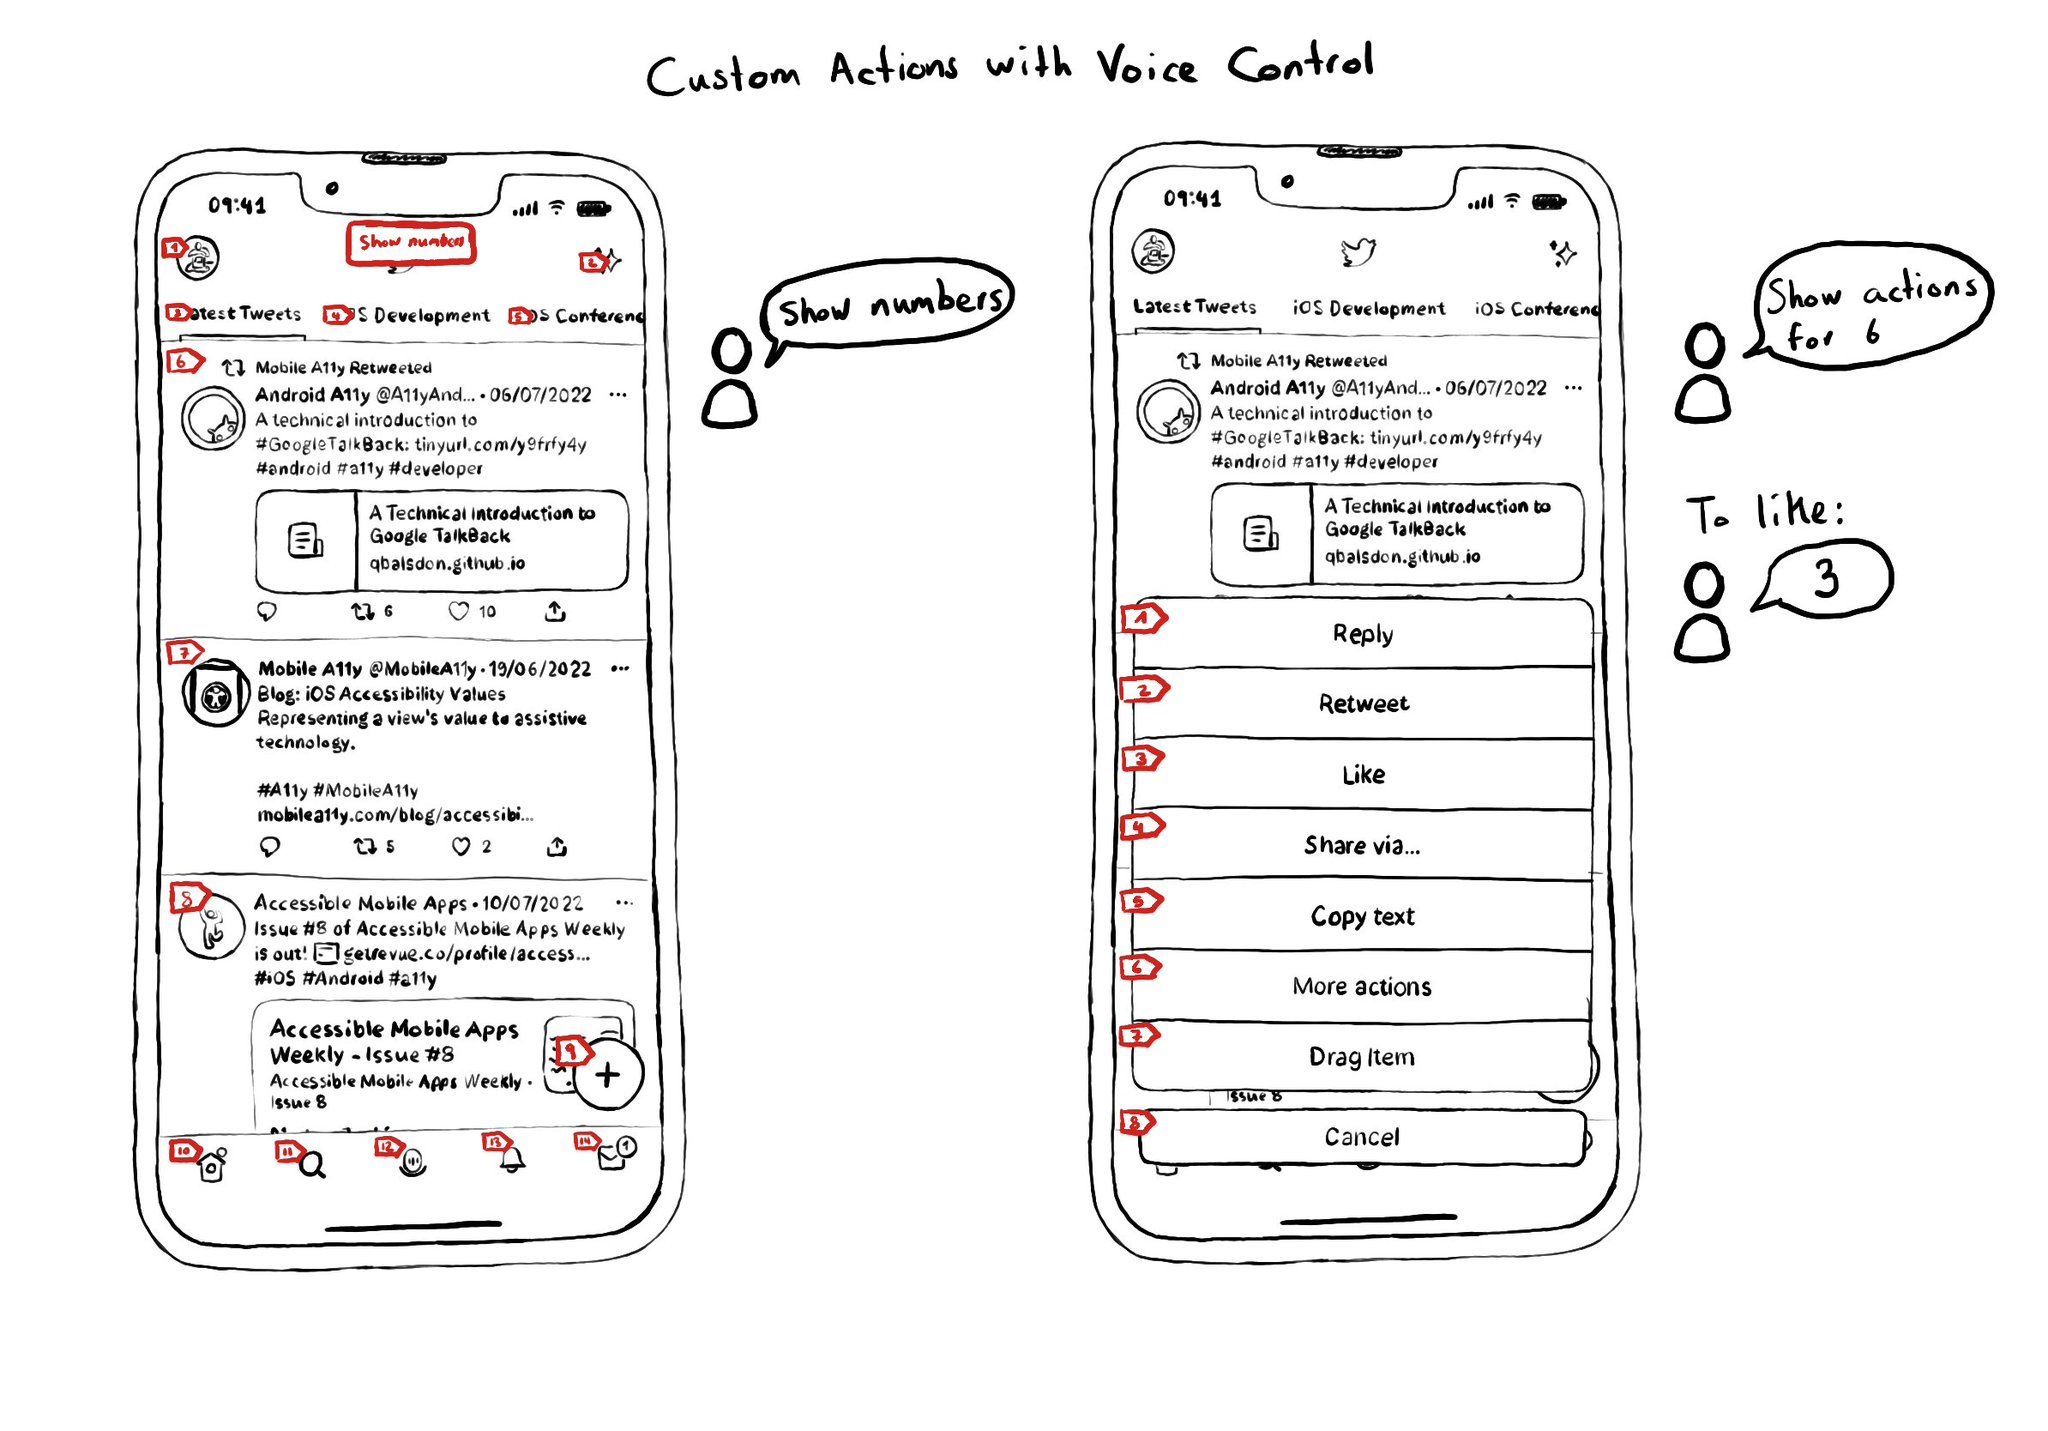 Custom Actions with Voice Control
09:41
Show numbers
1
2
3 atest Tweets 4 OS Development 5 OS Conferenc
6
Mobile A11y Retweeted
Android A11y @A11yAnd... · 06/07/2022 ...
A technical introduction to
#GoogleTalkBack: tinyurl.com/y9frfy4y
#android #a11y #developer
A Technical introduction to
Google TalkBack
qbalsdon.github.io
6 10
7
Mobile A11y @MobileA11y · 19/06/2022 ...
Blog: iOS Accessibility Values
Representing a view's value to assistive
technology.
#A11y #MobileA11y
mobilea11y.com/blog/accessibi...
5 2
8
Accessible Mobile Apps · 10/07/2022 ...
Issue #8 of Accessible Mobile Apps Weekly
is out! getrevue.co/profile/access...
#iOS #Android #a11y
Accessible Mobile Apps
Weekly - Issue #8
Accessible Mobile Apps Weekly ·
Issue 8
9
+
10 11 12 13 14
1
Show numbers
09:41
Latest Tweets iOS Development iOS Conferenc
Mobile A11y Retweeted
Android A11y @A11yAnd... · 06/07/2022 ...
A technical introduction to
#GoogleTalkBack: tinyurl.com/y9frfy4y
#android #a11y #developer
A Technical introduction to
Google TalkBack
qbalsdon.github.io
1 Reply
2 Retweet
3 Like
4 Share via...
5 Copy text
6 More actions
7 Drag Item
Issue 8
8 Cancel
Show actions
for 6
To like:
3